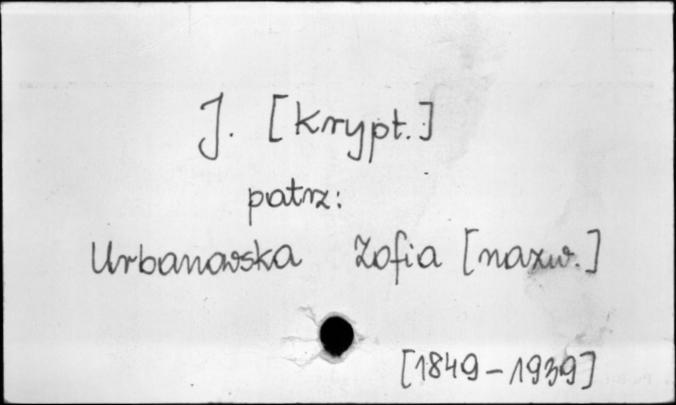 J. [Krypt.]
patrz:
Urbanowska Zofia [nazw.]
[1849-1939]